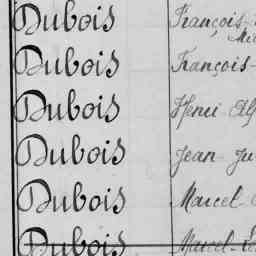 Dubois François-
Dubois François-
Dubois Henri
Dubois Jean-
Dubois Marcel-
Dubois Marcel-